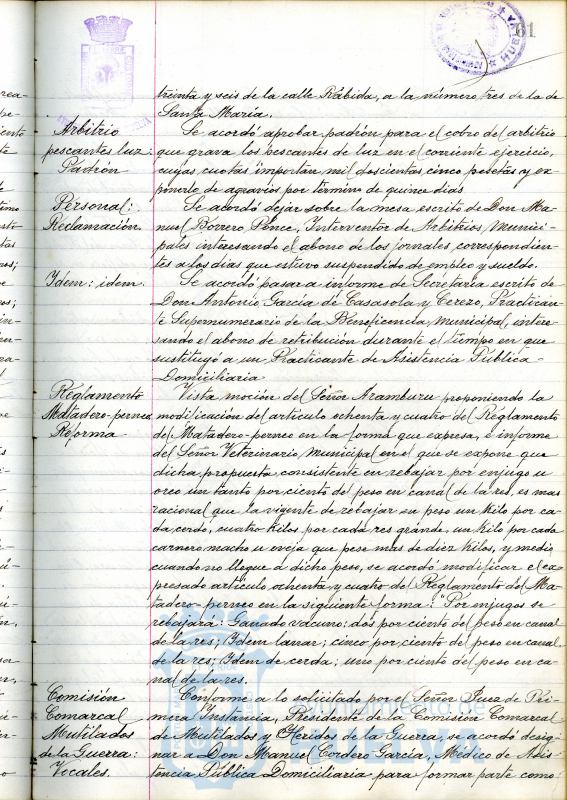 61
treinta y seis de la calle Rábida, a la número tres de la de
Santa María.
Arbitrio
pescantes luz:
Padrón
Se acordó aprobar padrón para el cobro de arbitrio
que grava los pescantes de luz en el corriente ejercicio,
cuyas cuotas importan mil doscientas cinco pesetas y ex-
ponerlo de agravios por término de quince días
Personal:
Reclamación.
Se acordó dejar sobre la mesa escrito de Don Ma-
nuel Borrero Ponce, Interventor de Arbitrios Munici-
pales interesando el abono de los jornales correspondien-
tes a los días que estuvo suspendido de empleo y sueldo.
Idem: idem.
Se acordó pasar a informe de Secretaría escrito de
Don Antonio García de Casasola y Cerezo, Practican-
te Supernumerario de la Beneficencia Municipal, intere-
sando el abono de retribución durante el tiempo en que
sustituyó a un Practicante de Asistencia Pública-
Domiciliaria
Reglamento
Matadero-perneo
Reforma
Vista moción del Señor Aramburu proponiendo la
modificación del artículo ochenta y cuatro del Reglamento
del Matadero-perneo en la forma que expresa, e informe
del Señor Veterinario Municipal en el que se expone que
dicha propuesta, consistente en rebajar por enjugo u
oreo un tanto por ciento del peso en canal de la res, es mas
racional que la vigente de rebajar en peso un kilo por ca-
da cerdo, cuatro kilos por cada res grande, un kilo por cada
carnero macho u oveja que pese mas de diez kilos, y medio
cuando no llegue a dicho peso, se acordó modificar el ex-
presado artículo ochenta y cuatro del Reglamento del Ma-
tadero-perneo en la siguiente forma: "Por enjugos se
rebajará: Ganado vacuno: dos por ciento del peso en canal
de la res; Idem lanar: cinco por ciento del peso en canal
de la res; Idem de cerda: uno por ciento del peso en ca-
nal de la res.
Comisión
Comarcal
Mutilados
de la Guerra:
Vocales.
Conforme a lo solicitado por el Señor Juez de Pri-
mera Instancia, Presidente de la Comisión Comarcal
de Mutilados y Heridos de la Guerra, se acordó desig-
nar a Don Manuel Cordero García, Médico de Asis-
tencia Pública Domiciliaria para formar parte como